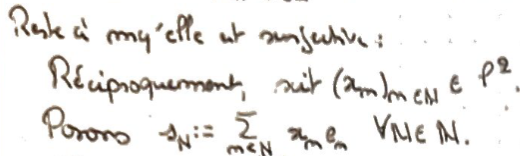 Reste à mq'elle est surjective :
Réciproquement, soit (x_m)_{m∈ℕ} ∈ ℓ².
Posons s_N := ∑_{m≤N} x_m e_m ∀N∈ℕ.